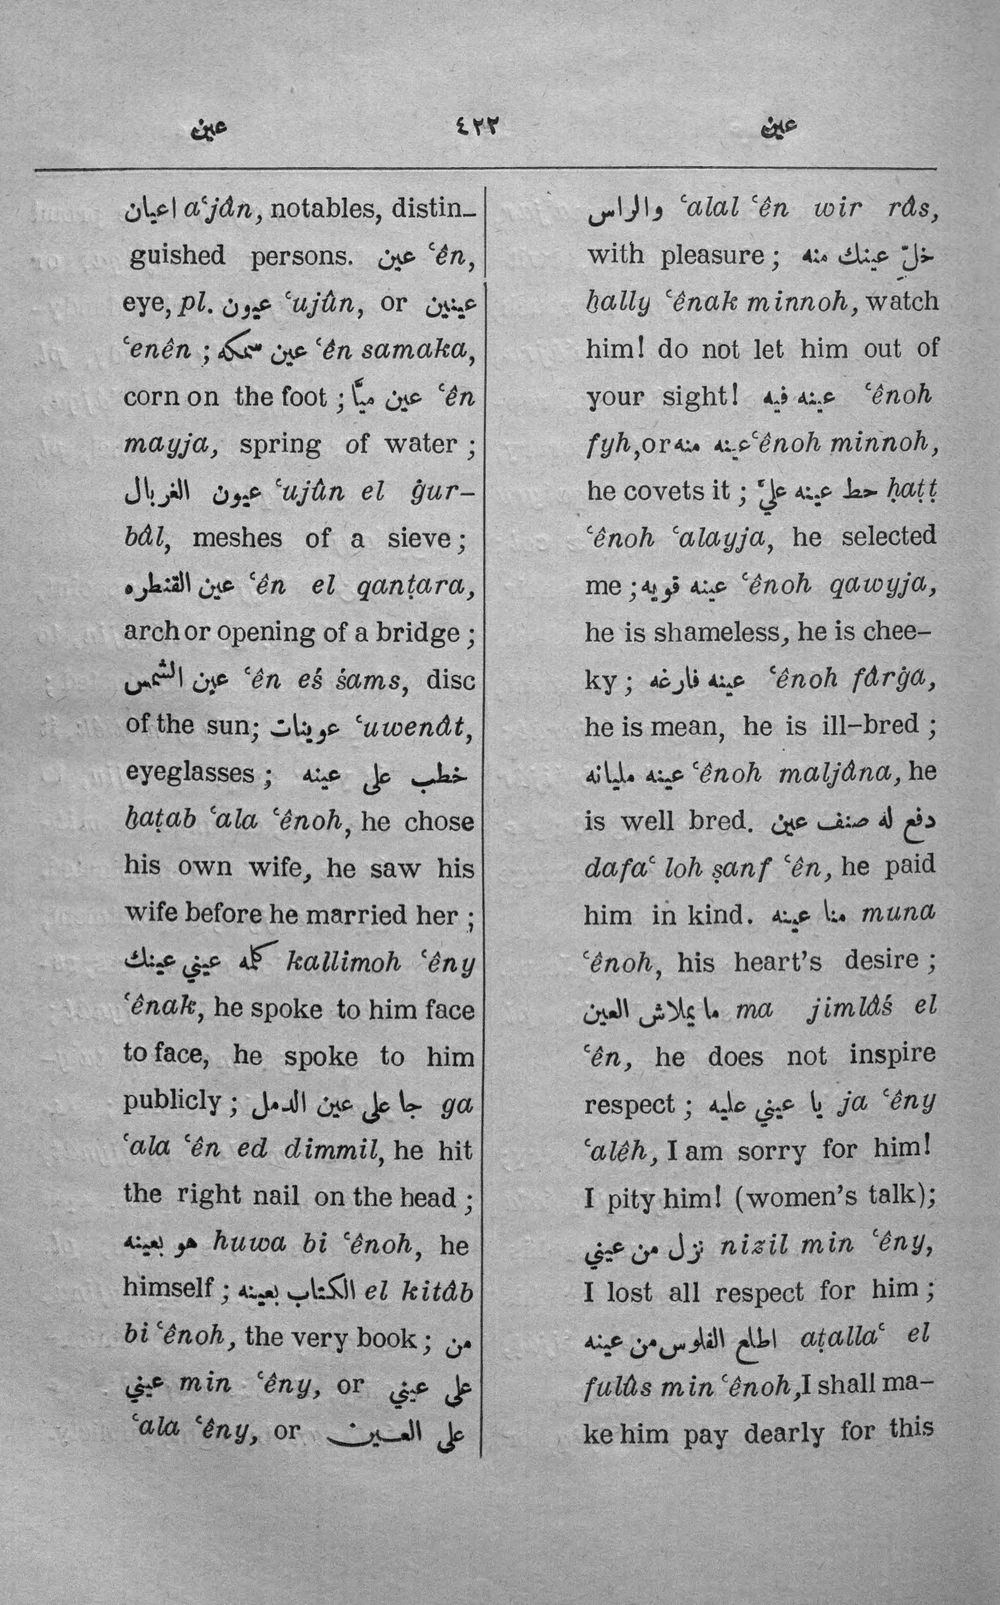 عين ٤٢٢ عين
اعيان aʿjân, notables, distin-
guished persons. عين ʿên,
eye, pl. عيون ʿujûn, or عينين
ʿenên ; عين سمكه ʿên samaka,
corn on the foot ; عين ميّا ʿên
mayja, spring of water ;
عيون الغربال ʿujûn el ġur-
bâl, meshes of a sieve;
عين القنطره ʿên el qanṭara,
arch or opening of a bridge ;
عين الشمس ʿên eś śams, disc
of the sun; عوينات ʿuwenât,
eyeglasses ; خطب على عينه
ḫaṭab ʿala ʿênoh, he chose
his own wife, he saw his
wife before he married her ;
كلمه عيني عينك kallimoh ʿêny
ʿênak, he spoke to him face
to face, he spoke to him
publicly ; جا على عين الدمل ga
ʿala ʿên ed dimmil, he hit
the right nail on the head ;
هو بعينه huwa bi ʿênoh, he
himself ; الكتاب بعينه el kitâb
bi ʿênoh, the very book ; من
عيني min ʿêny, or على عيني
ʿala ʿêny, or على العين
والراس ʿalal ʿên wir râs,
with pleasure ; خلّ عينك منه
ḫally ʿênak minnoh, watch
him! do not let him out of
your sight! عينه فيه ʿênoh
fyh, or عينه منه ʿênoh minnoh,
he covets it ; حط عينه عليّ ḥaṭṭ
ʿênoh ʿalayja, he selected
me ; عينه قويه ʿênoh qawyja,
he is shameless, he is chee-
ky ; عينه فارغه ʿênoh fârġa,
he is mean, he is ill-bred ;
عينه مليانه ʿênoh maljâna, he
is well bred. دفع له صنف عين
dafaʿ loh ṣanf ʿên, he paid
him in kind. منا عينه muna
ʿênoh, his heart's desire ;
ما يملاش العين ma jimlâś el
ʿên, he does not inspire
respect ; يا عيني عليه ja ʿêny
ʿalêh, I am sorry for him!
I pity him! (women's talk);
نزل من عيني nizil min ʿêny,
I lost all respect for him ;
اطلع الفلوس من عينه aṭallaʿ el
fulûs min ʿênoh, I shall ma-
ke him pay dearly for this